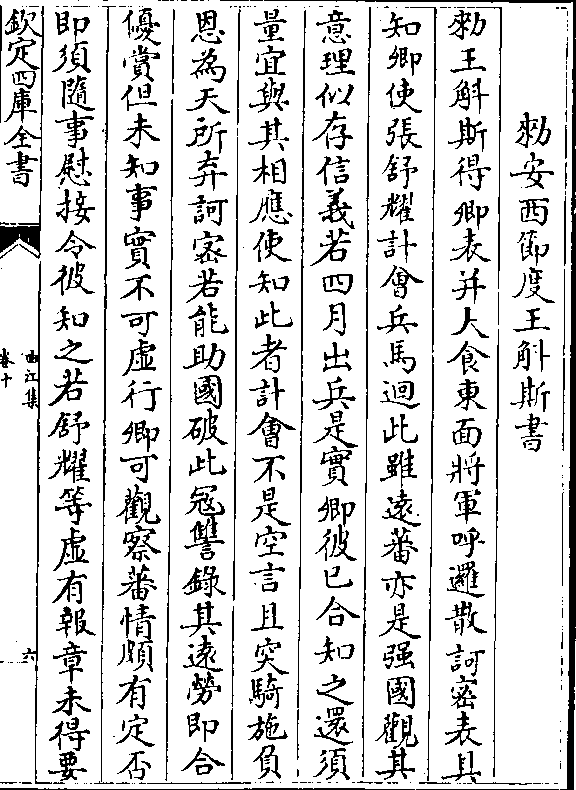 勑安西節度王斛斯書
勑王斛斯得卿表并大食東面將軍呼邏散訶密表具
知卿使張舒耀計會兵馬迴此雖逺蕃亦是强國觀其
意理似存信義若四月出兵是實卿彼已合知之還須
量宜與其相應使知此者計會不是空言且突騎施負
恩為天所弃訶宻若能助國破此冦讐錄其逺勞即合
優賞但未知事實不可虚行卿可觀察蕃情頗有定否
即須隨事慰接令彼知之若舒耀等虚有報章未得要
欽定四庫全書
曲江集
卷十
六